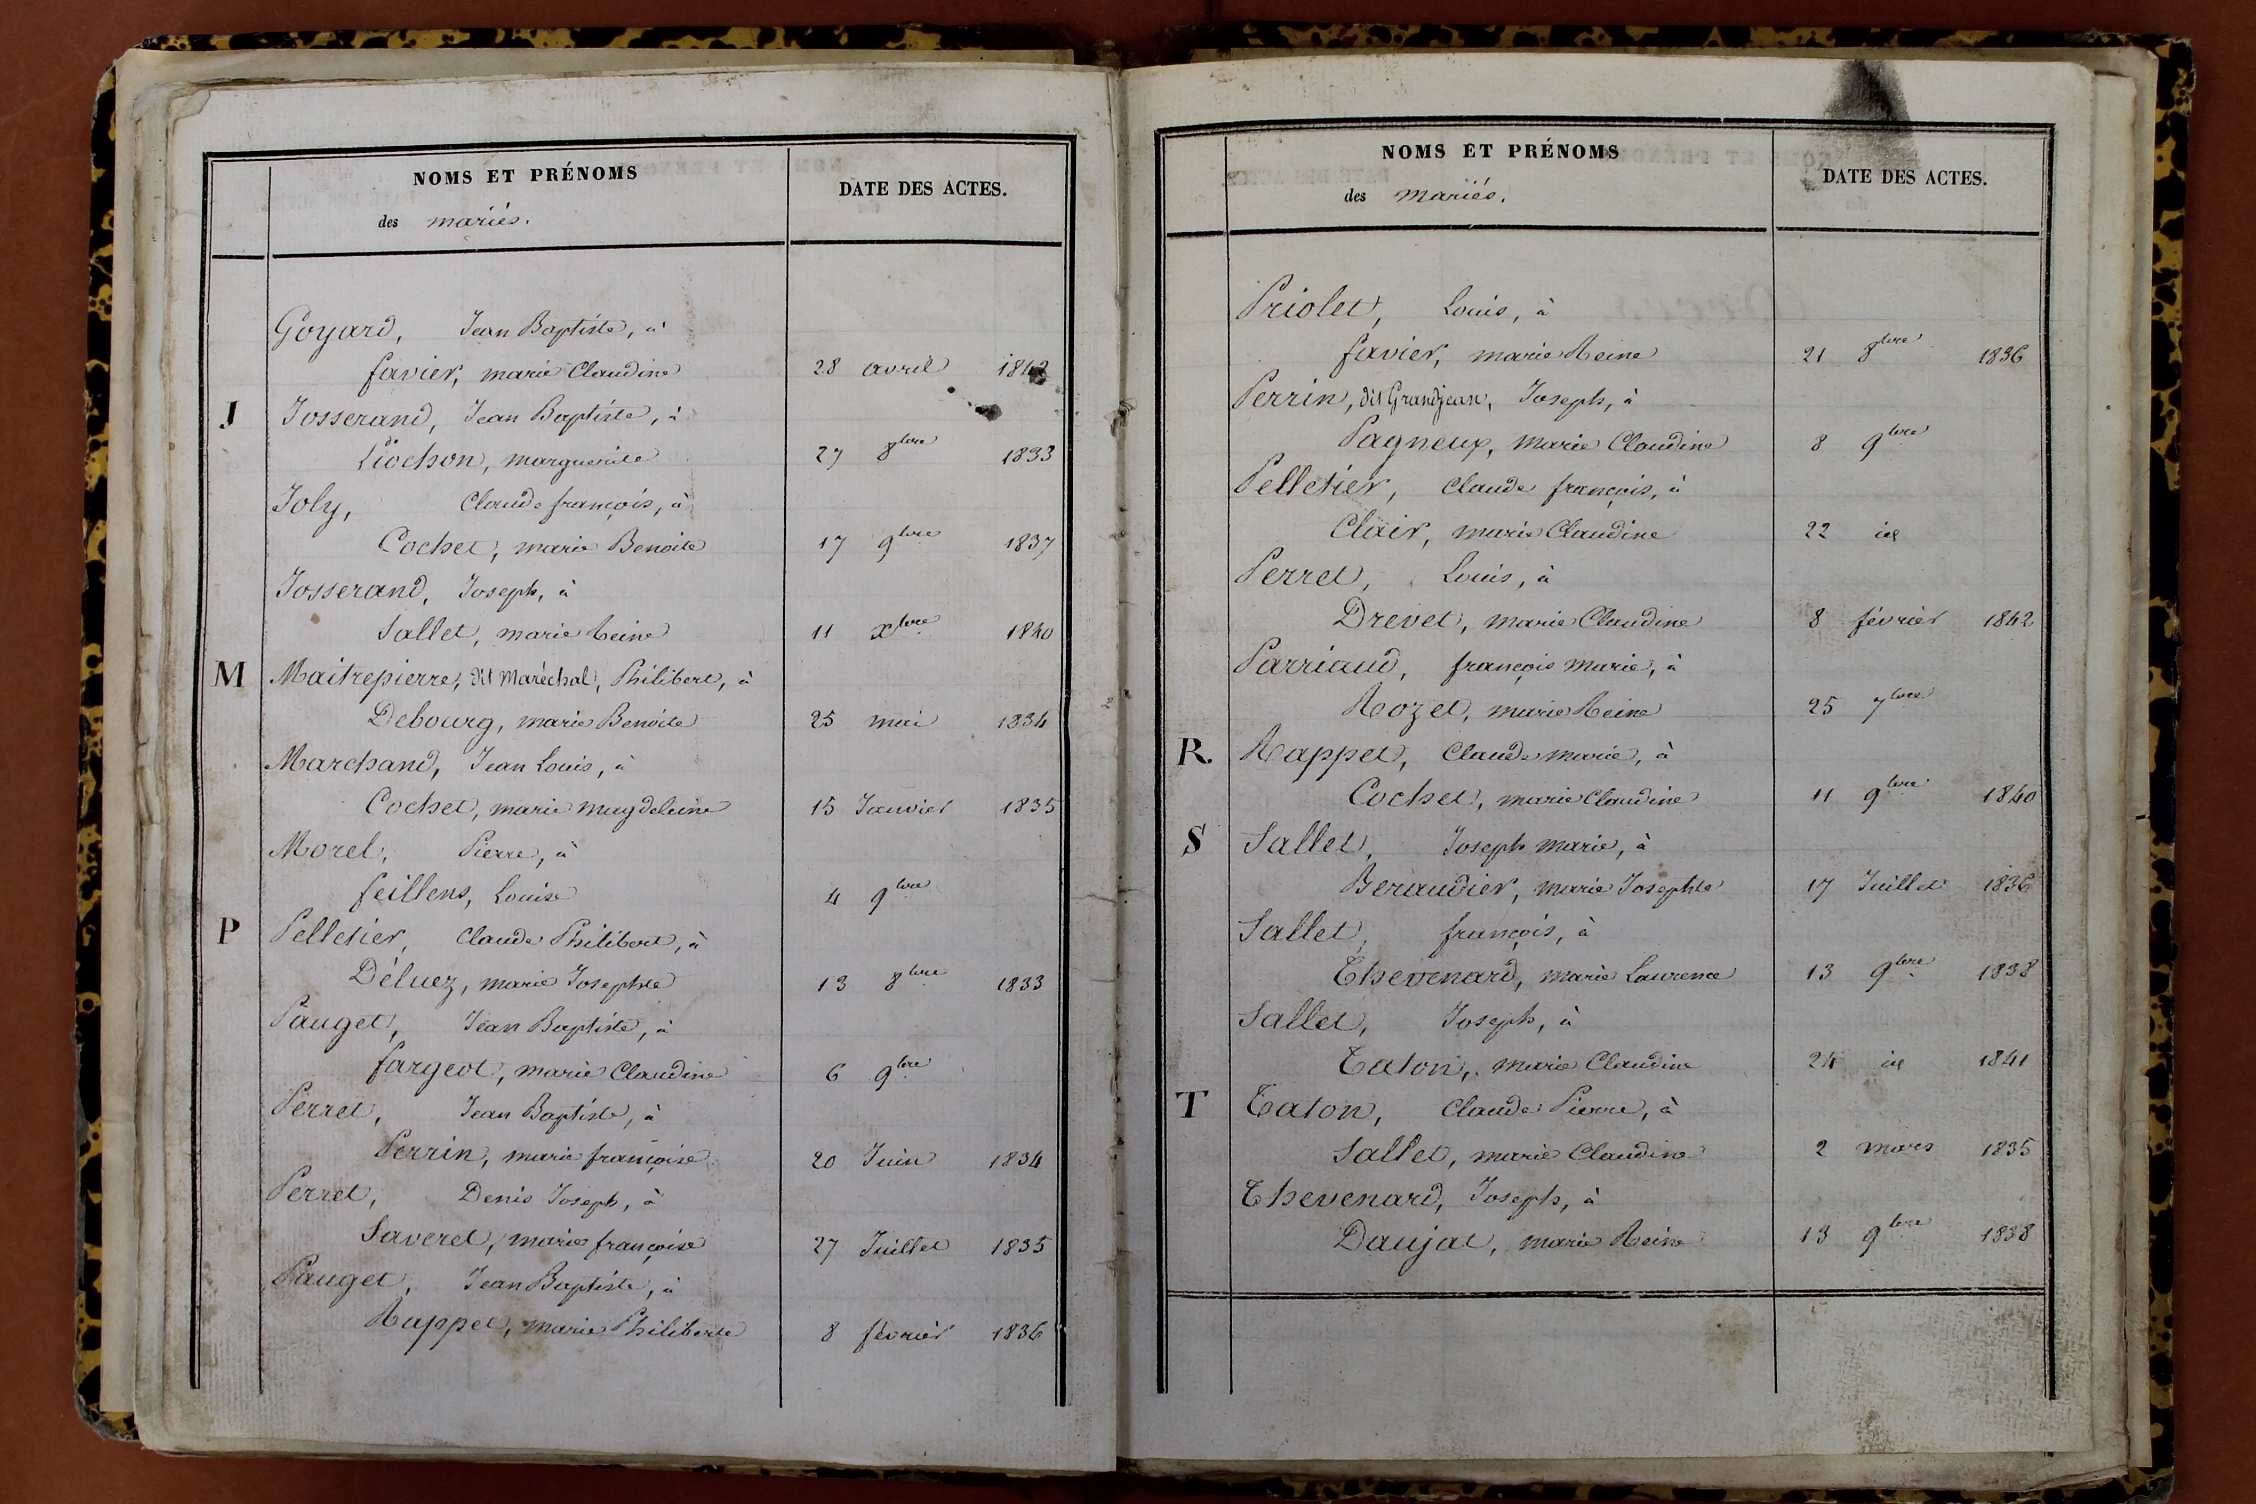 NOMS ET PRÉNOMS
des mariés.
DATE DES ACTES.
Goyard, Jean Baptiste, à
favier, marie Claudine 28 avril 1842
J Josserand, Jean Baptiste, à
Liochon, marguerite 27 8bre 1833
Joly, Claude françois, à
Cochet, marie Benoite 17 9bre 1837
Josserand, Joseph, à
Sallet, marie Reine 11 xbre 1840
M Maitrepierre, dit Maréchal, Philibert, à
Debourg, marie Benoite 25 mai 1834
Marchand, Jean Louis, à
Cochet, marie magdeleine 15 Janvier 1835
Morel, Pierre, à
feillens, Louise 4 9bre
P Pelletier, Claude Philibert, à
Déluez, marie Josephte 13 8bre 1833
Pauget, Jean Baptiste, à
fargeot, marie Claudine 6 9bre
Perret, Jean Baptiste, à
Perrin, marie françoise 20 Juin 1834
Perret, Denis Joseph, à
Saveret, marie françoise 27 Juillet 1835
Pauget, Jean Baptiste, à
Rappet, marie Philiberte 8 février 1836
NOMS ET PRÉNOMS
des mariés.
DATE DES ACTES.
Priolet, Louis, à
favier, marie Reine 21 8bre 1836
Perrin, dit Grandjean, Joseph, à
Pagneux, marie Claudine 8 9bre
Pelletier, Claude françois, à
Clair, marie Claudine 22 id
Perret, Louis, à
Drevet, marie Claudine 8 février 1842
Parriaud, françois marie, à
Rozet, marie Reine 25 7bre
R. Rappet, Claude marie, à
Cochet, marie Claudine 11 9bre 1840
S Sallet, Joseph marie, à
Beraudier, marie Josephte 17 Juillet 1836
Sallet, françois, à
Thevenard, marie Laurence 13 9bre 1838
Sallet, Joseph, à
Taton, marie Claudine 24 id 1841
T Taton, Claude Pierre, à
Sallet, marie Claudine 2 mars 1835
Thevenard, Joseph, à
Daujat, marie Reine 13 9bre 1838